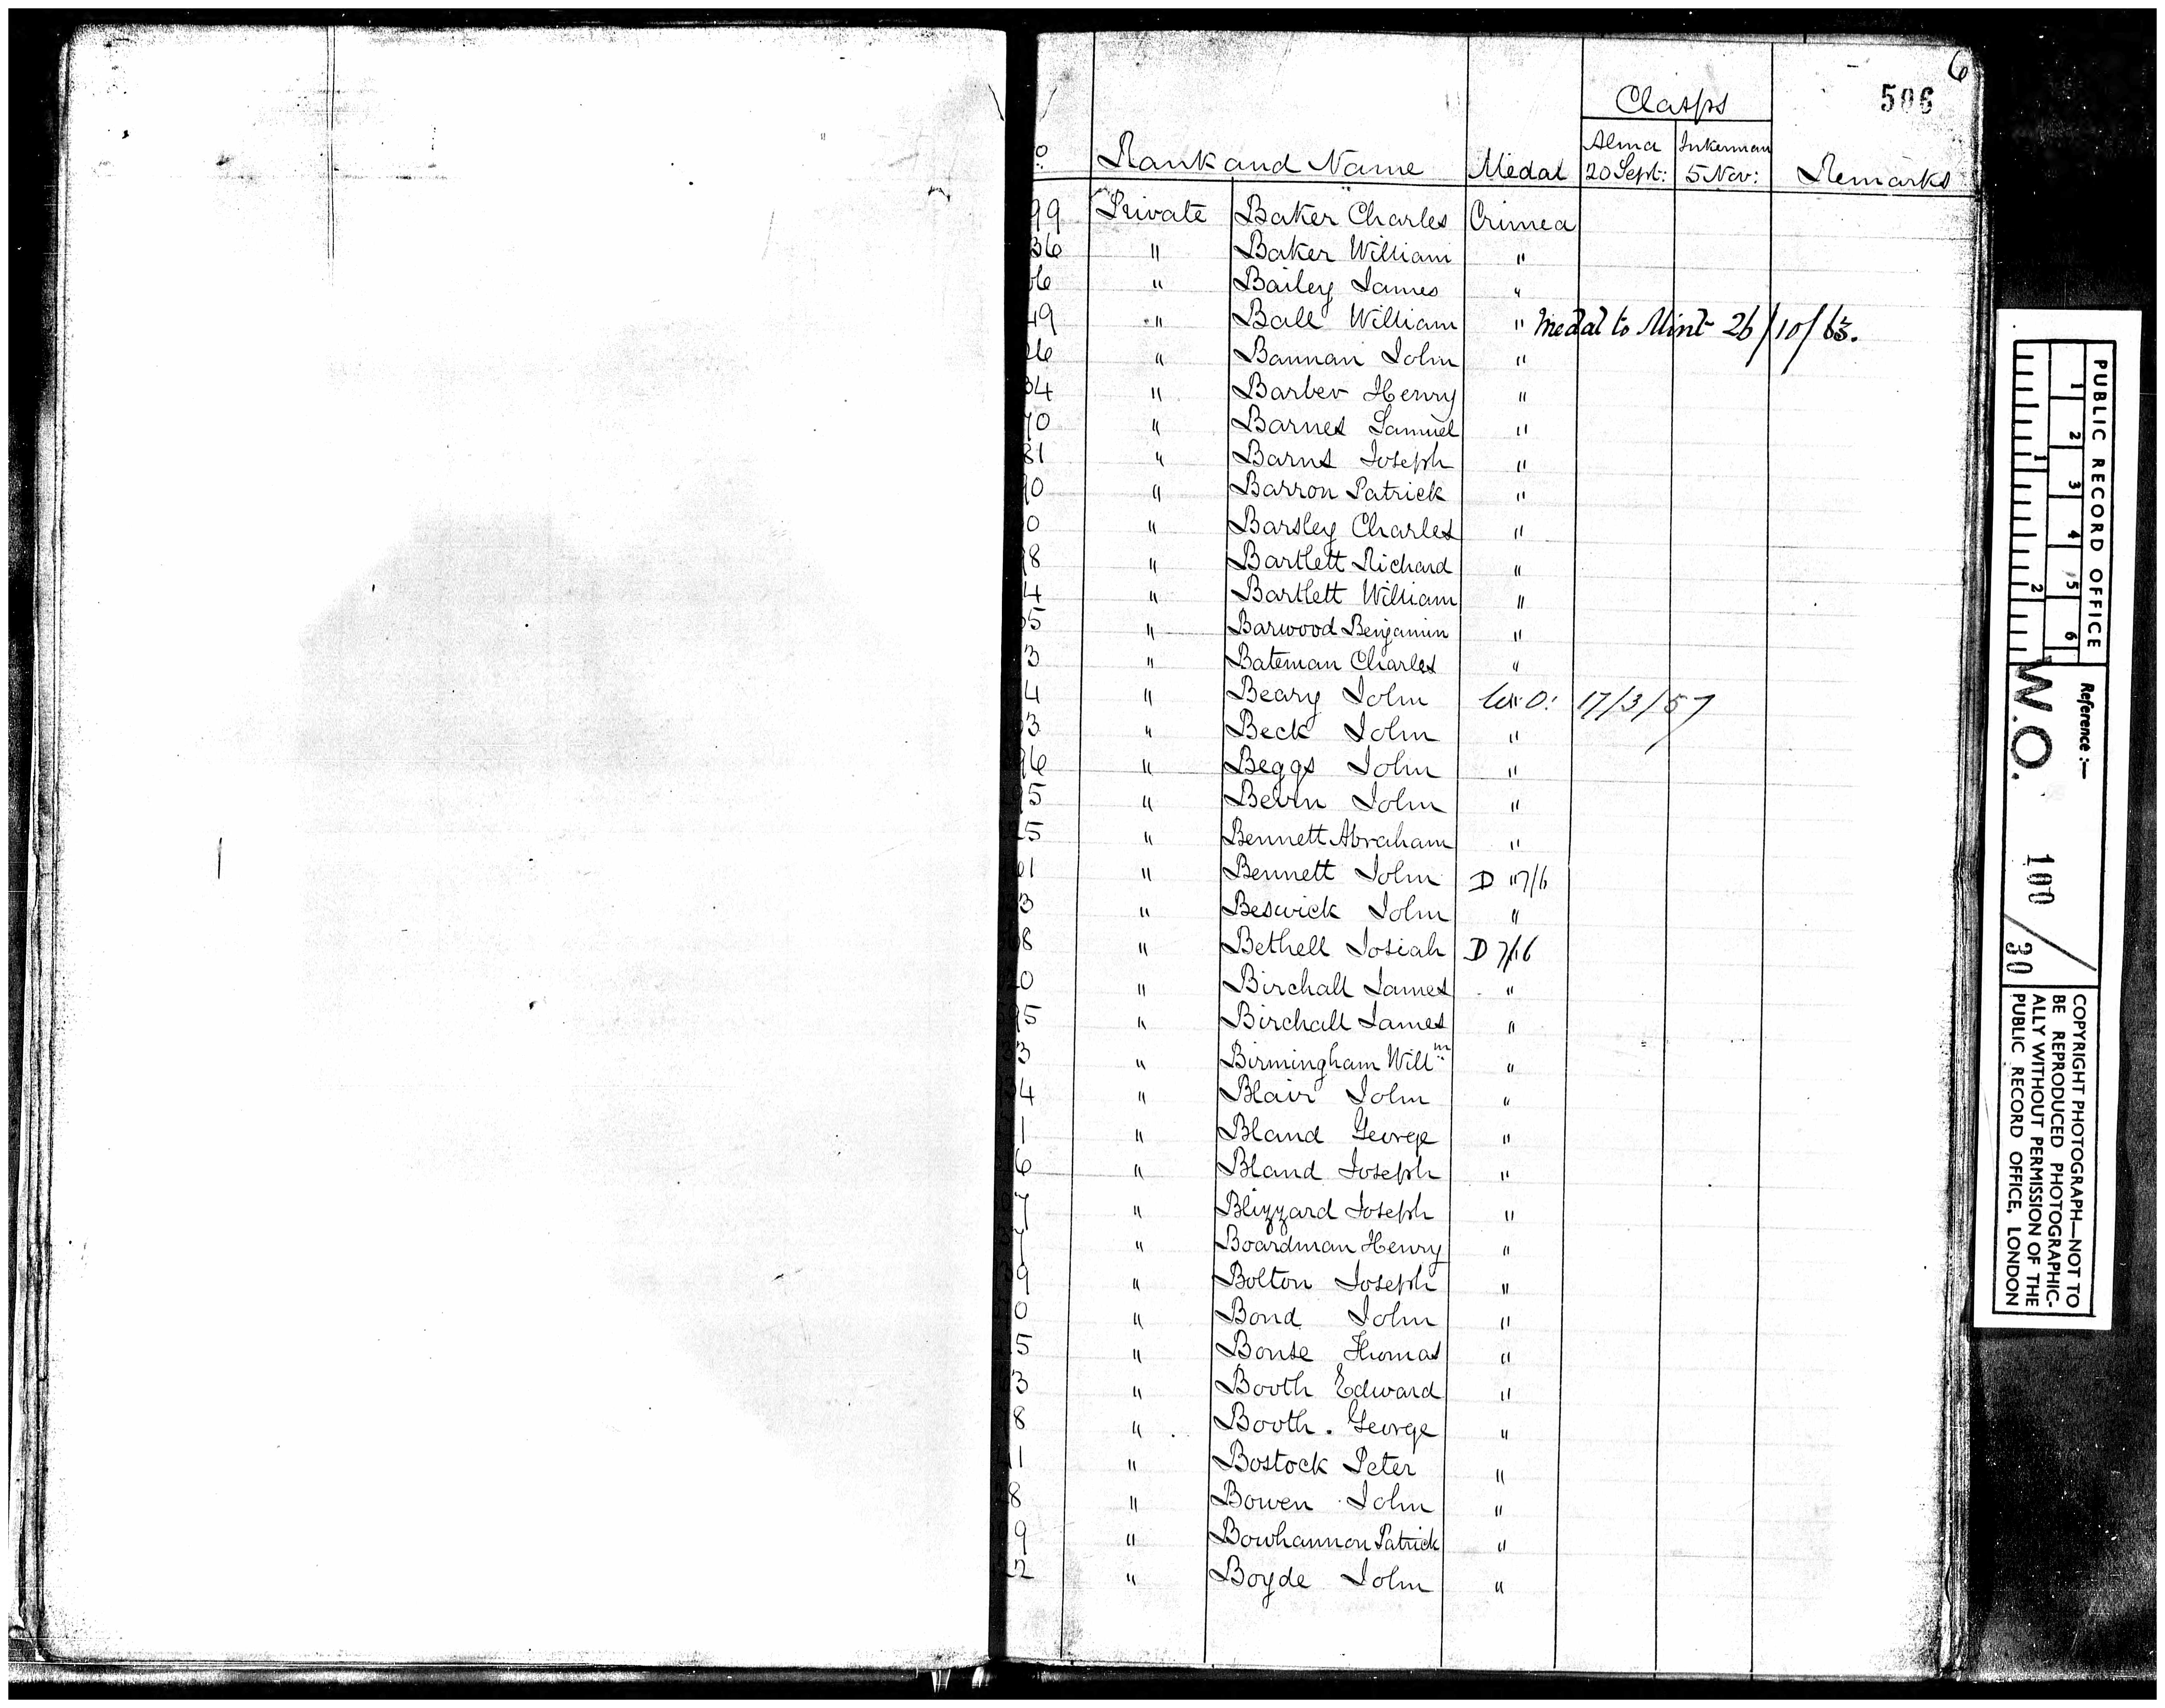 6
506
Clasps
o Rank and Name Medal Alma 20 Sept: Inkerman 5 Nov: Remarks
99 Private Baker Charles Crimea
36 " Baker William "
6 " Bailey James "
49 " Ball William " Medal to Mint 26/10/63.
26 " Bannan John "
34 " Barber Henry "
70 " Barnes Samuel "
81 " Barns Joseph "
90 " Barron Patrick "
0 " Barsley Charles "
98 " Bartlett Richard "
4 " Bartlett William "
55 " Barwood Benjamin "
3 " Bateman Charles "
4 " Beary John " W.O: 17/3/57
3 " Beck John "
96 " Beggs John "
95 " Bevin John "
25 " Bennett Abraham "
01 " Bennett John D " 7/6
3 " Beswick John "
8 " Bethell Josiah D 7/6
0 " Birchall James "
95 " Birchall James "
3 " Birmingham Willm "
4 " Blair John "
1 " Bland George "
6 " Bland Joseph "
7 " Blizzard Joseph "
7 " Boardman Henry "
9 " Bolton Joseph "
0 " Bond John "
5 " Bonse Thomas "
3 " Booth Edward "
8 " Booth. George "
1 " Bostock Peter "
8 " Bowen John "
9 " Bowhannon Patrick "
2 " Boyde John "
PUBLIC RECORD OFFICE
1 2 3 4 5 6
1 2
Reference :—
W.O. 100/30
COPYRIGHT PHOTOGRAPH—NOT TO
BE REPRODUCED PHOTOGRAPHIC-
ALLY WITHOUT PERMISSION OF THE
PUBLIC RECORD OFFICE, LONDON